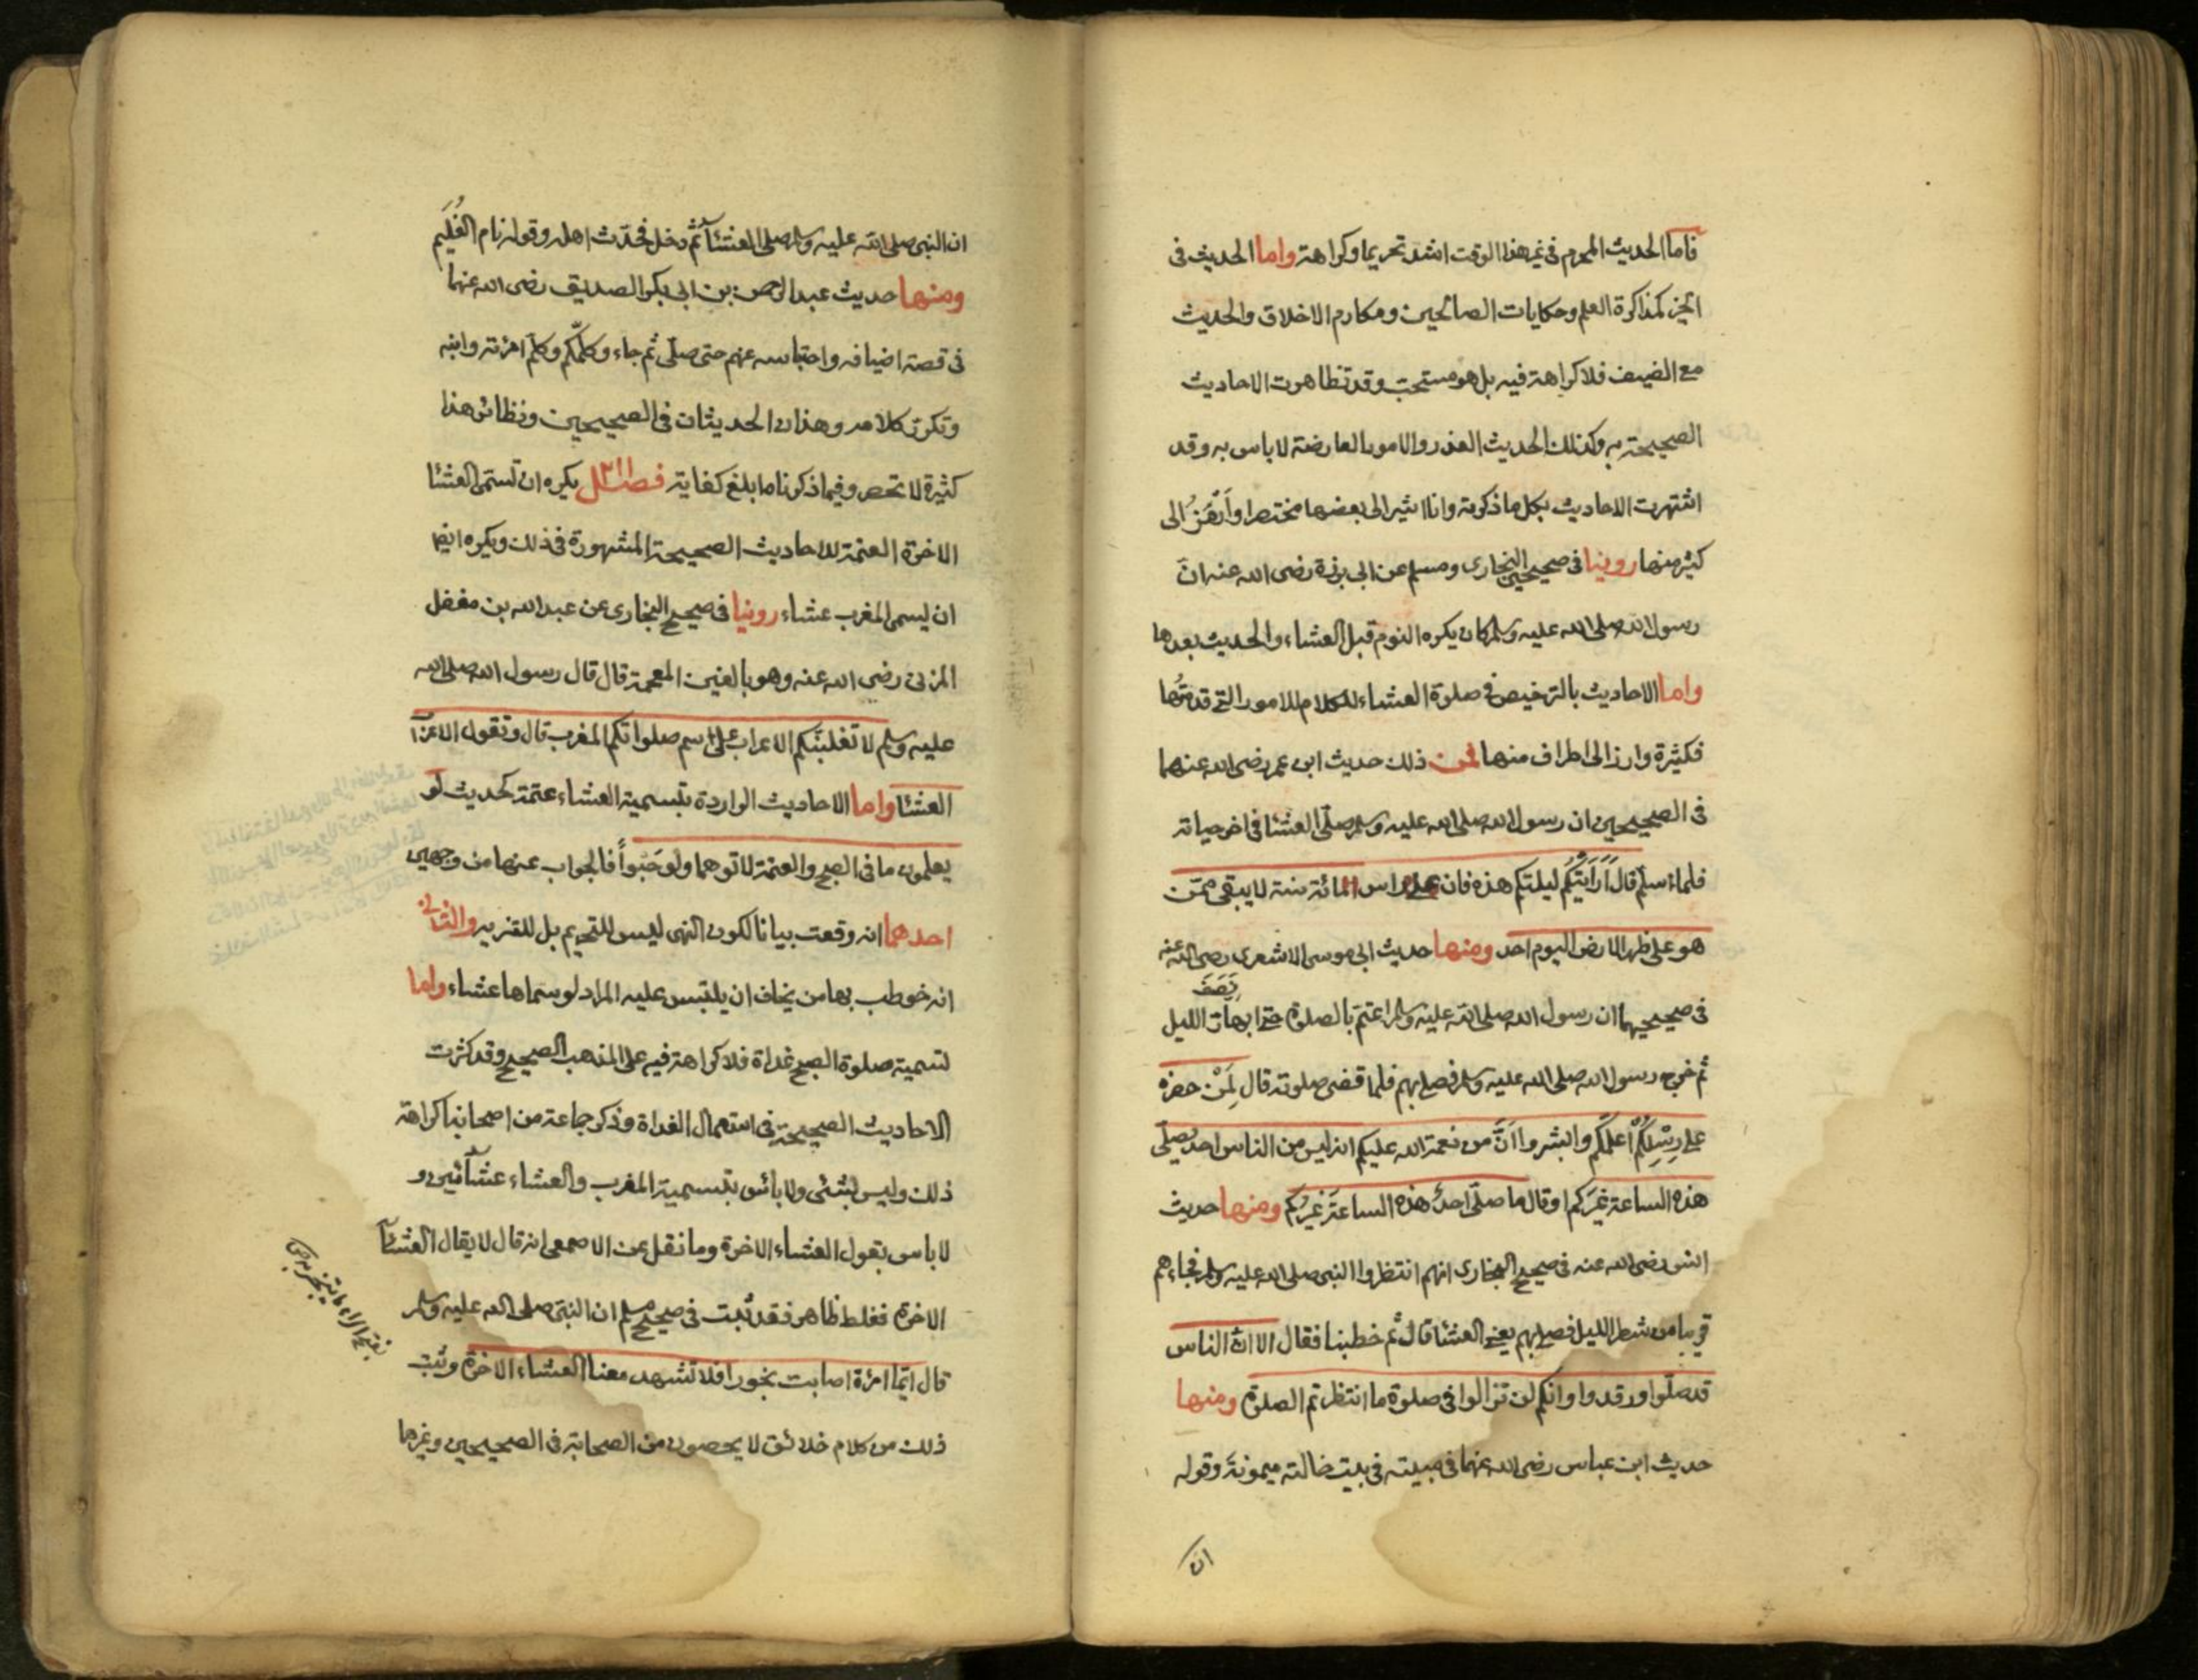 فاما الحديث المحرم في غير هذا الوقت اشد تحريما وكراهة واما الحديث في
الخير كمذاكرة العلم وحكايات الصالحين ومكارم الاخلاق والحديث
مع الضيف فلا كراهة فيه بل هو مستحب وقد تظاهرت الاحاديث
الصحيحة به وكذلك الحديث العذر والامور العارضة لا باس به وقد
اشتهرت الاحاديث بكل ما ذكرته وانا اشير الى بعضها مختصرا وارمز الى
كثير منها روينا في صحيحي البخاري ومسلم عن ابي برزة رضى الله عنه ان
رسول الله صلى الله عليه وسلم كان يكره النوم قبل العشاء والحديث بعدها
واما الاحاديث بالترخيص في صلوة العشاء للكلام للامور التي قدمتها
فكثيرة وارمز الى اطراف منها فمن ذلك حديث ابن عمر رضى الله عنهما
في الصحيحين ان رسول الله صلى الله عليه وسلم صلى العشا في اخر حياته
فلما سلم قال اَرَاَيتَكُم ليلتكم هذه فان على راس المائة سنة لا يبقى ممن
هو على ظهر الارض اليوم احد ومنها حديث ابي موسى الاشعرى رضى الله عنه
في صحيحيهما ان رسول الله صلى الله عليه وسلم اعتم بالصلوة حتى ابهار الليل
ثم خرج رسول الله صلى الله عليه وسلم فصلى بهم فلما قضى صلوته قال لِمَنْ حضره
على رِسْلِكُمْ اعلمكم وابشروا اَنَّ من نعمة الله عليكم انه ليس من الناس احد يصلي
هذه الساعة غيركم او قال ما صلى احدٌ هذه الساعة غيركم ومنها حديث
انس رضى الله عنه في صحيح البخارى انهم انتظروا النبى صلى الله عليه وسلم فجاءهم
قريبا من شطر الليل فصلى بهم يعني العشا قال ثم خطبنا فقال الا ان الناس
قد صلوا ورقدوا وانكم لن تزالوا في صلوة ما انتظرتم الصلوة ومنها
حديث ابن عباس رضى الله عنهما في مبيته في بيت خالته ميمونة وقوله
ان
ان النبي صلى الله عليه وسلم صلى العشاء ثم دخل فحدّث اهله وقوله نام الغُلَيم
ومنها حديث عبد الرحمن بن ابى بكر الصديق رضى الله عنهما
في قصة اضيافه واحتباسه عنهم حتى صلى ثم جاء وكلمهم وكلم امرءته وابنه
وتكرر كلامه وهذان الحديثان في الصحيحين ونظائر هذا
كثيرة لا تحصر وفيما ذكرناه ابلغ كفاية فصل يكره ان تسمى العشا
الاخرة العتمة للاحاديث الصحيحة المشهورة في ذلك ويكره ايضا
ان يسمى المغرب عشاء روينا في صحيح البخارى عن عبد الله بن مغفل
المزنى رضى الله عنه وهو بالغين المعجمة قال قال رسول الله صلى الله
عليه وسلم لا تغلبنكم الاعراب على اسم صلواتكم المغرب قال وتقول الاعراب
العشا واما الاحاديث الواردة بتسمية العشاء عتمة كحديث لو
يعلمون ما في الصبح والعتمة لاتوهما ولو حَبْواً فالجواب عنها من وجهين
احدهما انه وقعت بيانا لكون النهى ليس للتحريم بل للتنزيه والثانى
انه خوطب بها من يخاف ان يلتبس عليه المراد لو سماها عشاء واما
تسمية صلوة الصبح غداة فلا كراهة فيه على المذهب الصحيح وقد كثرت
الاحاديث الصحيحة في استعمال الغداة وذكر جماعة من اصحابنا كراهة
ذلك وليس بشئ ولا باس بتسمية المغرب والعشاء عشائين و
لا باس بقول العشاء الاخرة وما نقل عن الاصمعى انه قال لا يقال العشاء
الاخرة فغلط ظاهر فقد ثبت في صحيح مسلم ان النبى صلى الله عليه وسلم
قال ايما امرءة اصابت بخورا فلا تشهد معنا العشاء الاخرة وثبت
ذلك من كلام خلائق لا يحصون من الصحابة في الصحيحين وغيرها